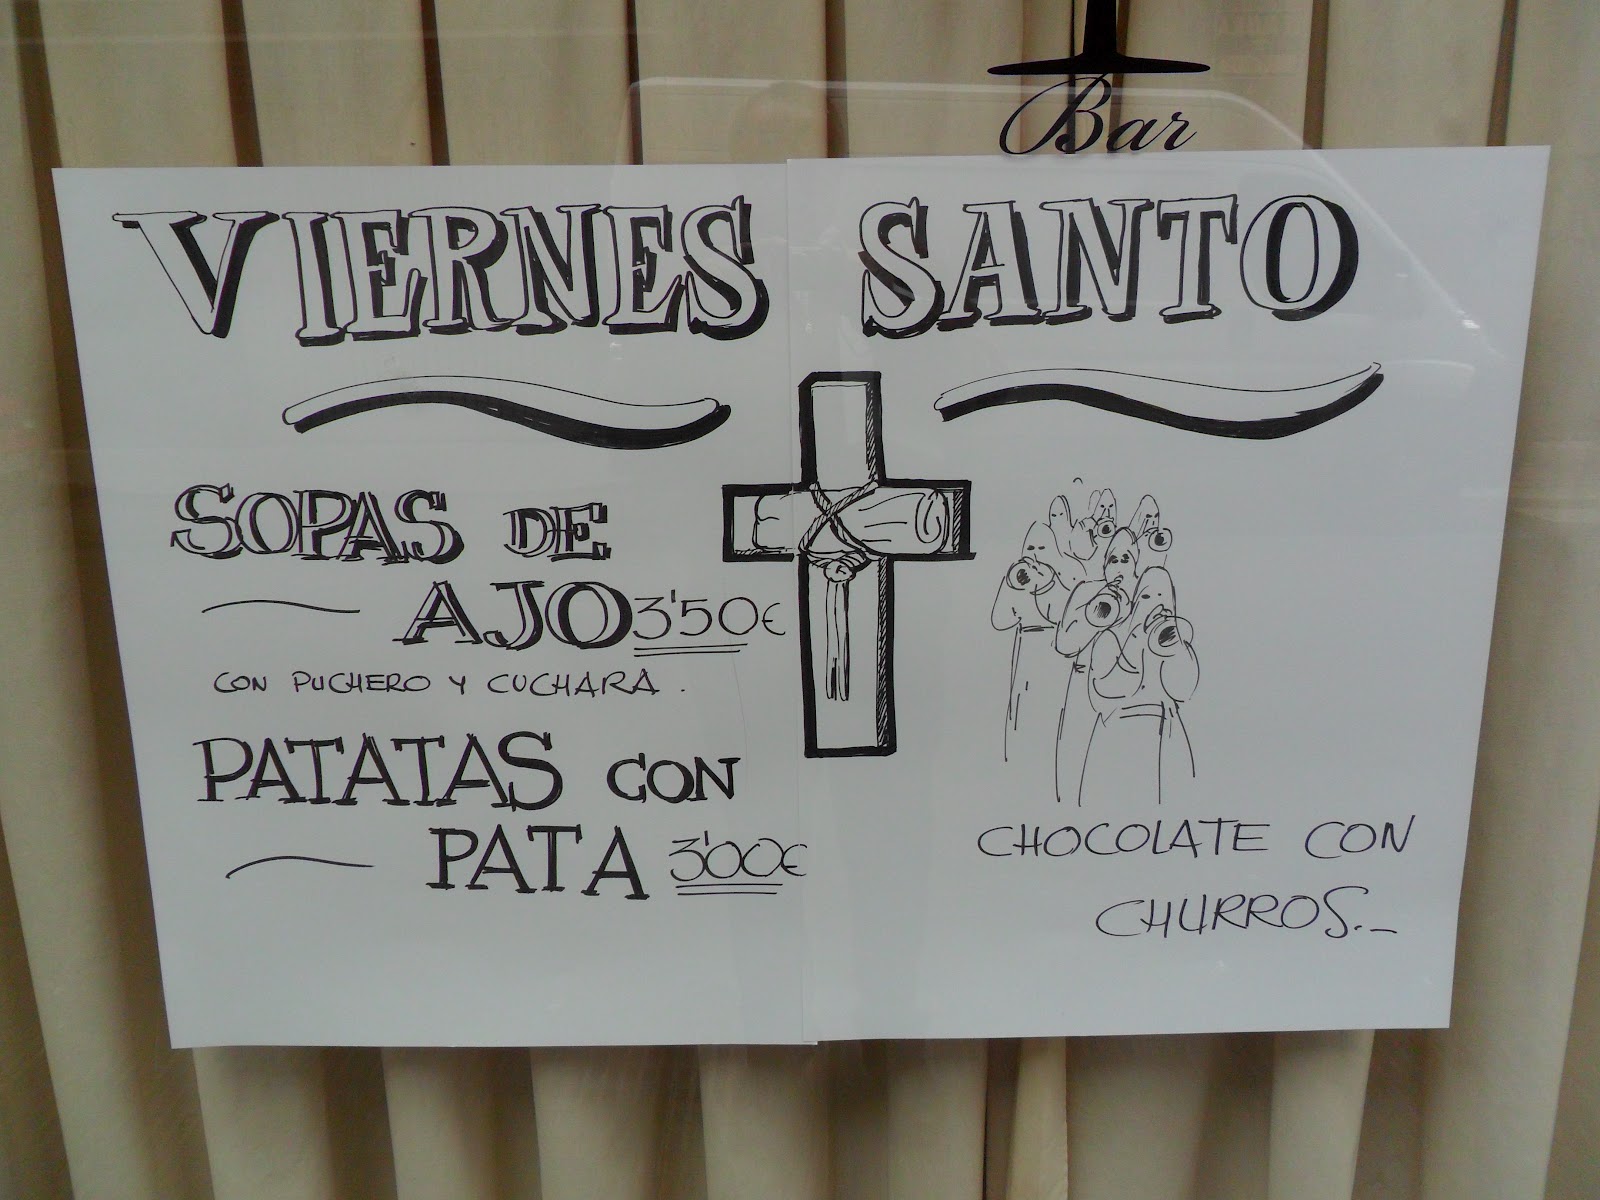 Bar
VIERNES SANTO
SOPAS DE
AJO 3'50€
CON PUCHERO Y CUCHARA.
PATATAS CON
PATA 3'00€
CHOCOLATE CON
CHURROS.-